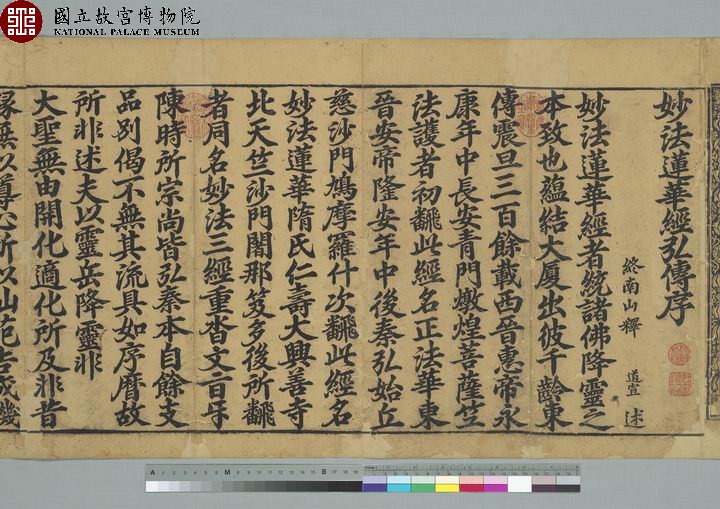 國立故宮博物院
NATIONAL PALACE MUSEUM
妙法蓮華經弘傳序
終南山釋 道宣 述
妙法蓮華經者統諸佛降靈之
本致也蘊結大厦出彼千齡東
傳震旦三百餘載西晉惠帝永
康年中長安青門燉煌菩薩竺
法護者初飜此經名正法華東
晉安帝隆安年中後秦弘始丘
慈沙門鳩摩羅什次飜此經名
妙法蓮華隋氏仁壽大興善寺
北天竺沙門闍那笈多後所飜
者同名妙法三經重沓文旨互
陳時所宗尚皆弘秦本自餘支
品別偈不無其流具如序曆故
所非述夫以靈岳降靈非
大聖無由開化適化所及非昔
緣無以導心所以仙苑告成機